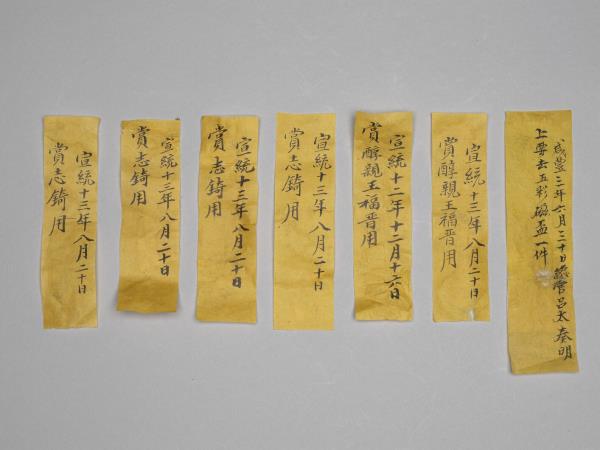 咸豐二年六月三十日總管呂太奏明
上要去五彩磁盃一件
宣統十三年八月二十日
賞醇親王福晋用
宣統十二年十二月十六日
賞醇親王福晋用
宣統十三年八月二十日
賞志錡用
宣統十三年八月二十日
賞志錡用
宣統十三年八月二十日
賞志錡用
宣統十三年八月二十日
賞志錡用